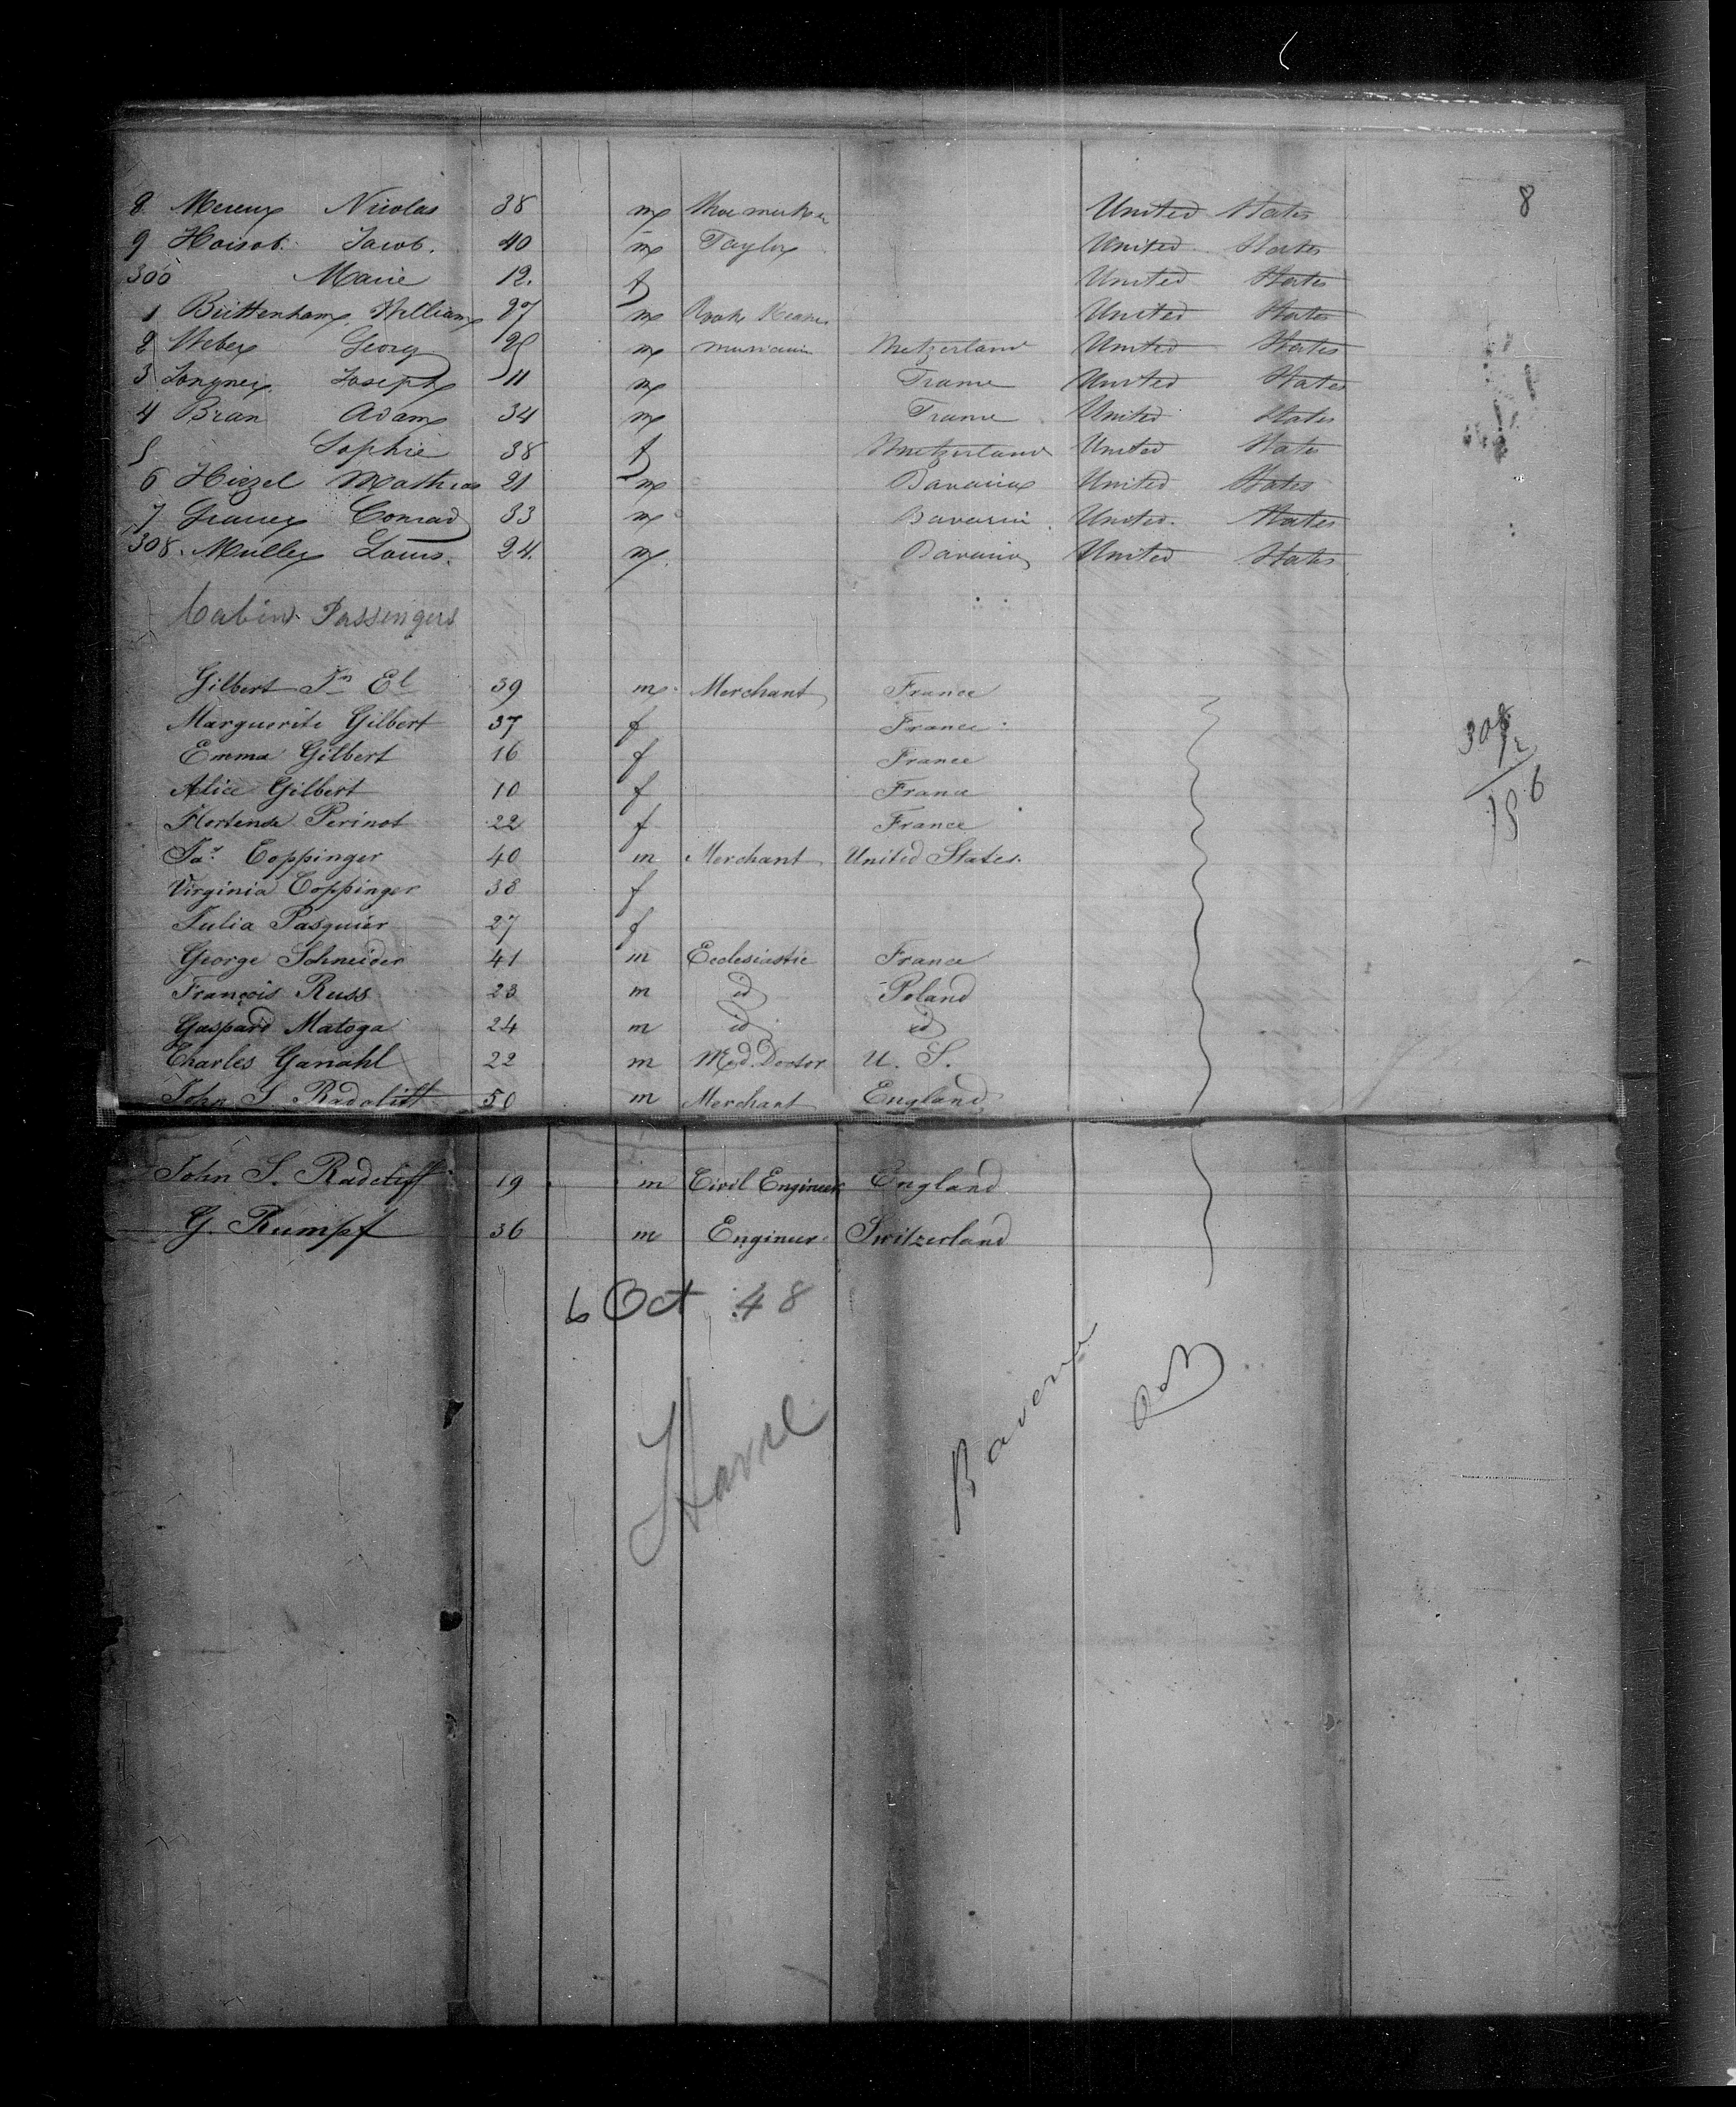 8
8 Nicolas 38 m United States
9 Jacob. 40 m Taylor United States
300 Marie 12. f United States
1 William 27 m United States
2 Weber Georg m Switzerland United States
3 Joseph 11 m France United States
4 Bran Adam 34 m France United States
5 Sophie 38 f Switzerland United States
6 Hirzel Mathias 21 m Bavaria United States
7 Conrad 33 m Bavaria United States
308. Muller Louis. 24. m. Bavaria United States
Cabin Passengers
Gilbert Jn El 39 m. Merchant France
Marguerite Gilbert 37 f France
308
12
Emma Gilbert 16 f France
Alice Gilbert 10 f France
Hortense Perinot 22 f France
Jas. Coppinger 40 m Merchant United States.
Virginia Coppinger 38 f
Julia Pasquier 27 f
George Schneider 41 m Ecclesiastic France
François Russ 23 m id Poland
Gaspard Matoga 24 m id id
Charles Ganahl 22 m Med. Doctor U. S.
John S. Radcliff 50 m Merchant England
John S. Radcliff 19 m Civil Engineer England
G. Rumpf 36 m Engineer Switzerland
6 Oct 48
Havre